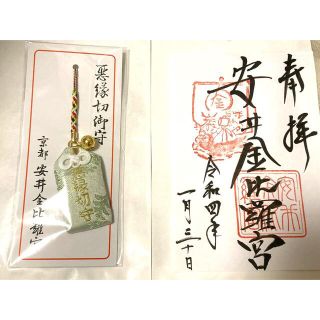 悪縁切御守
京都 安井金比羅宮
悪縁切守
奉拝
安井金比羅宮
令和四年
一月三十日